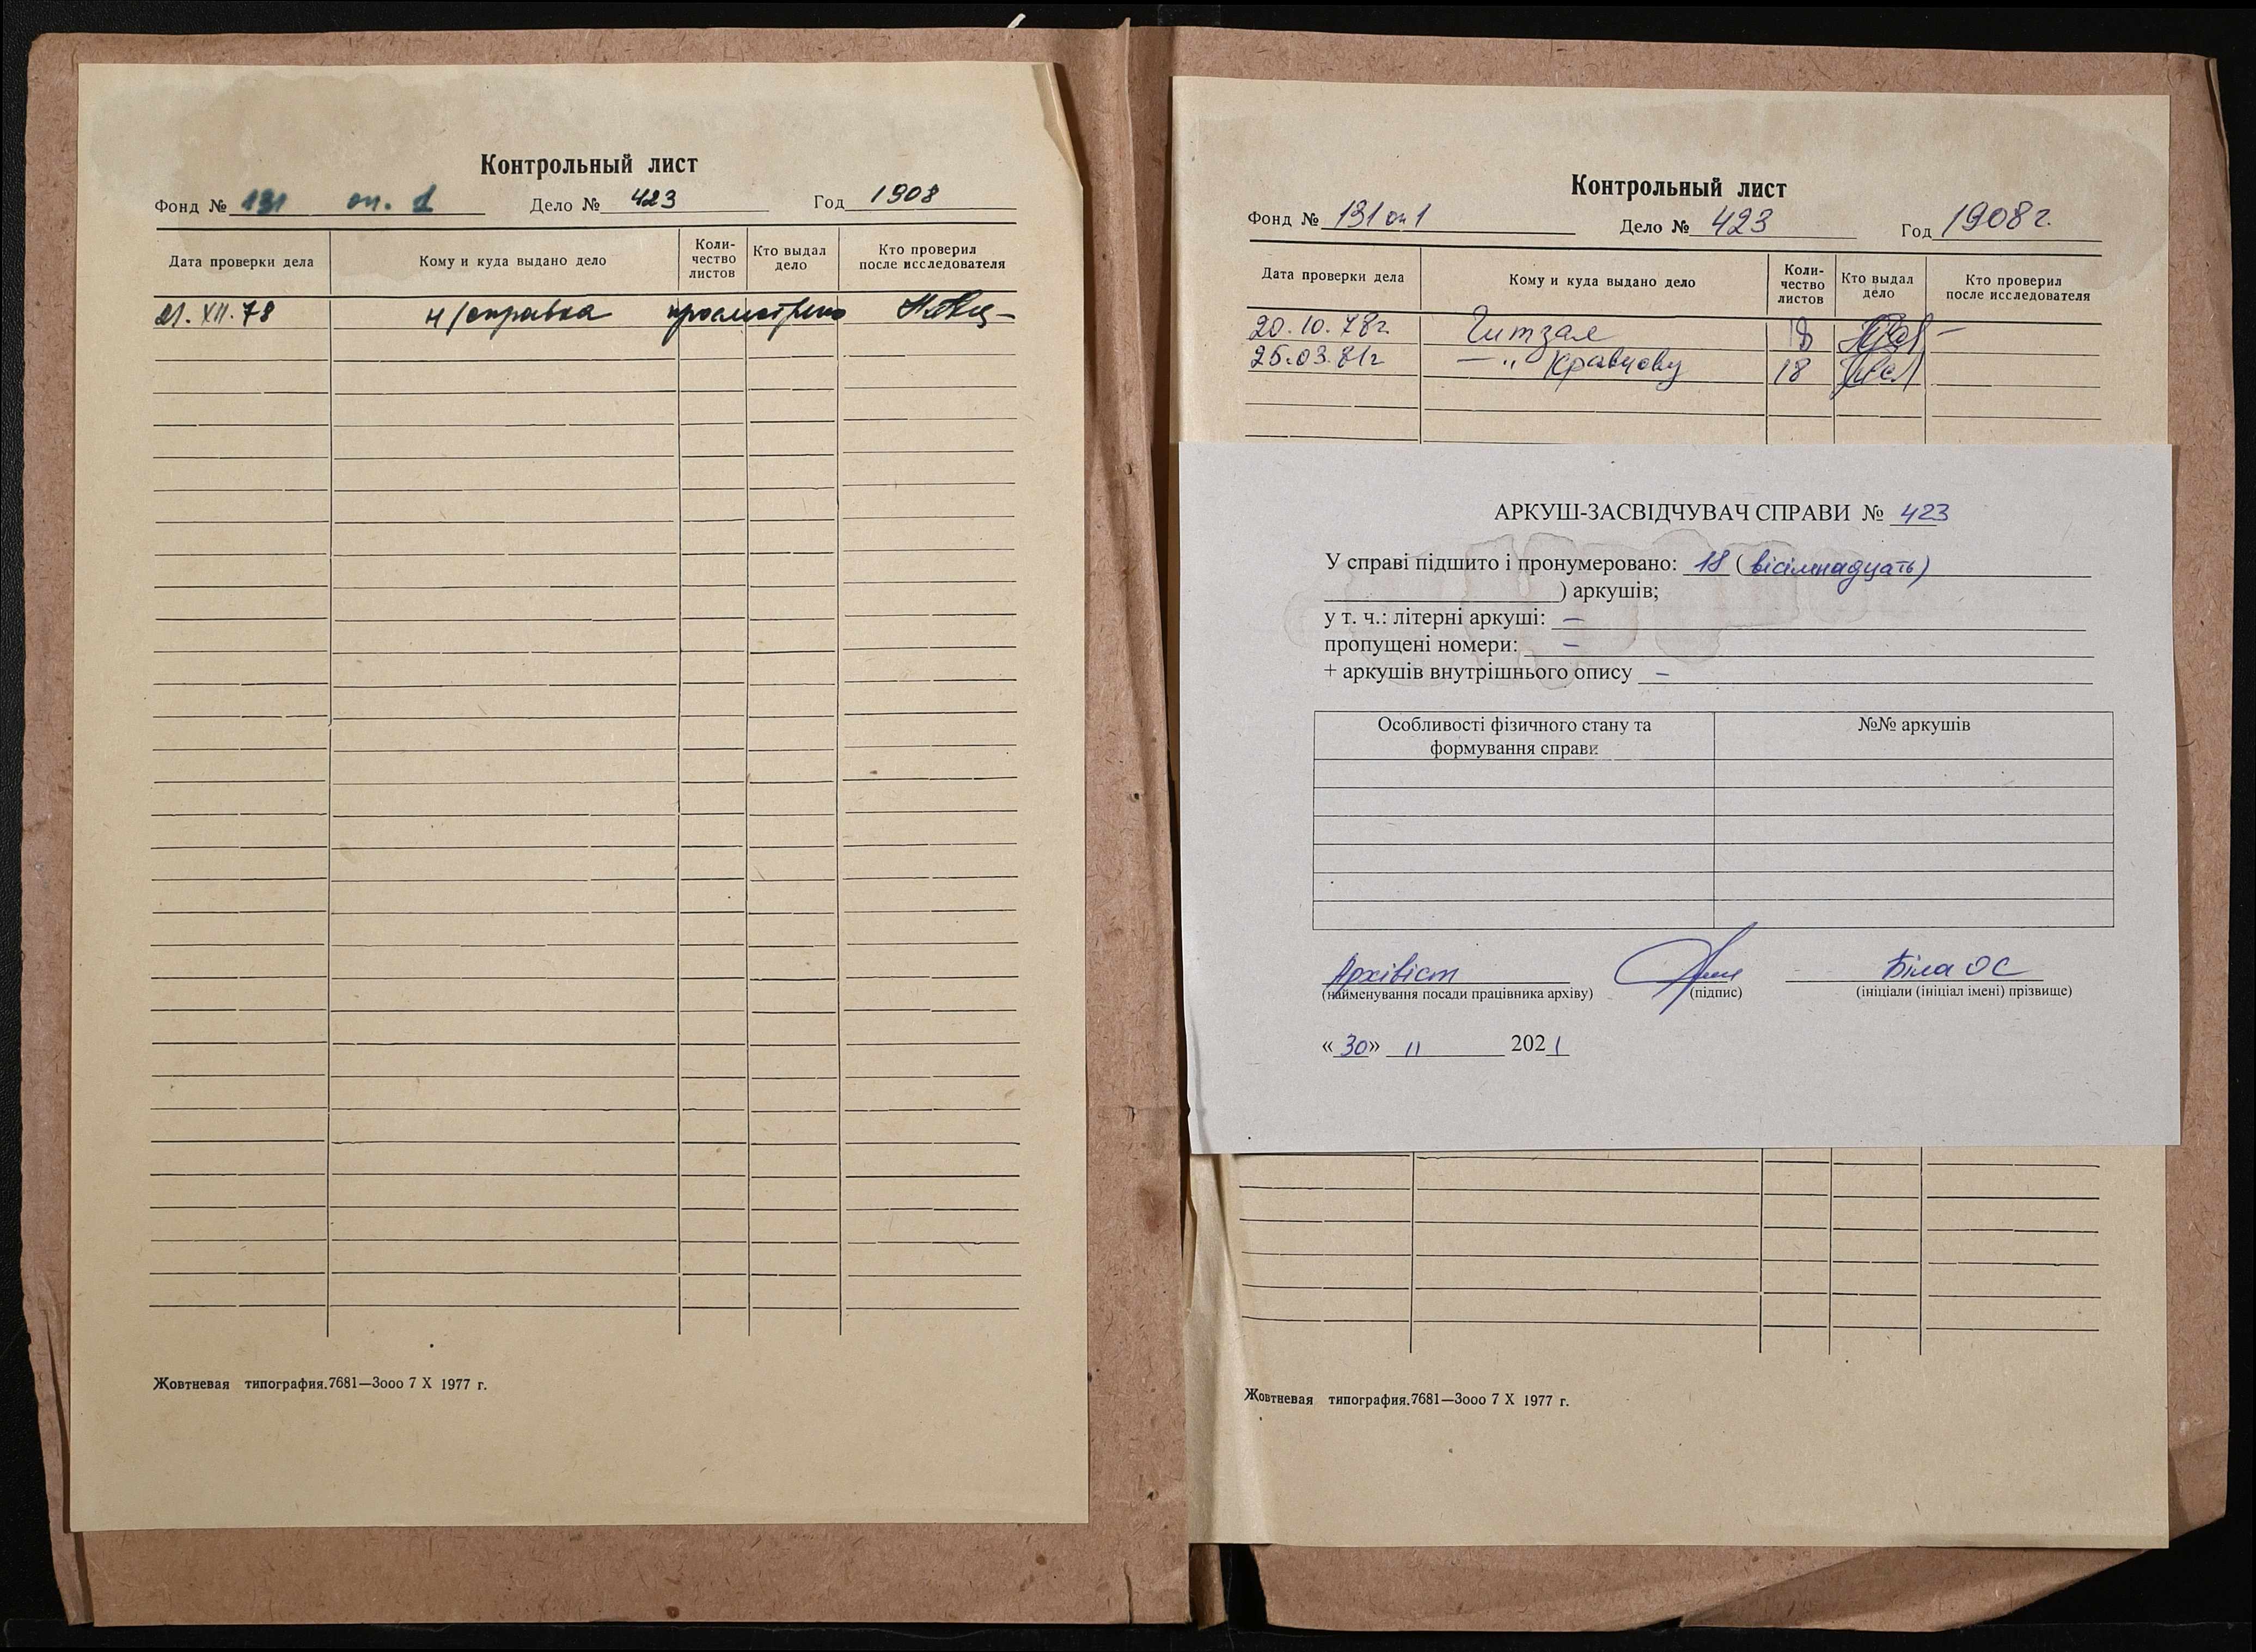 Контрольный лист
Фонд № 131 оп. 1 Дело № 423 Год 1908
Дата проверки дела Кому и куда выдано дело Коли-чество листов Кто выдал дело Кто проверил после исследователя
21. XII. 78 н/справка просмотрено
Жовтневая типография.7681—3ооо 7 X 1977 г.
Контрольный лист
Фонд № 131 оп 1 Дело № 423 Год 1908 г.
Дата проверки дела Кому и куда выдано дело Коли-чество листов Кто выдал дело Кто проверил после исследователя
20. 10. 78г. Читзал 18 —
25.03.81г — " Кравцову 18
АРКУШ-ЗАСВІДЧУВАЧ СПРАВИ № 423
У справі підшито і пронумеровано: 18 ( вісімнадцять )
) аркушів;
у т. ч.: літерні аркуші: –
пропущені номери: –
+ аркушів внутрішнього опису –
Особливості фізичного стану та формування справи №№ аркушів
Архівіст Біла ОС
(найменування посади працівника архіву) (підпис) (ініціали (ініціал імені) прізвище)
« 30 » 11 2021
Жовтневая типография.7681—3ооо 7 X 1977 г.